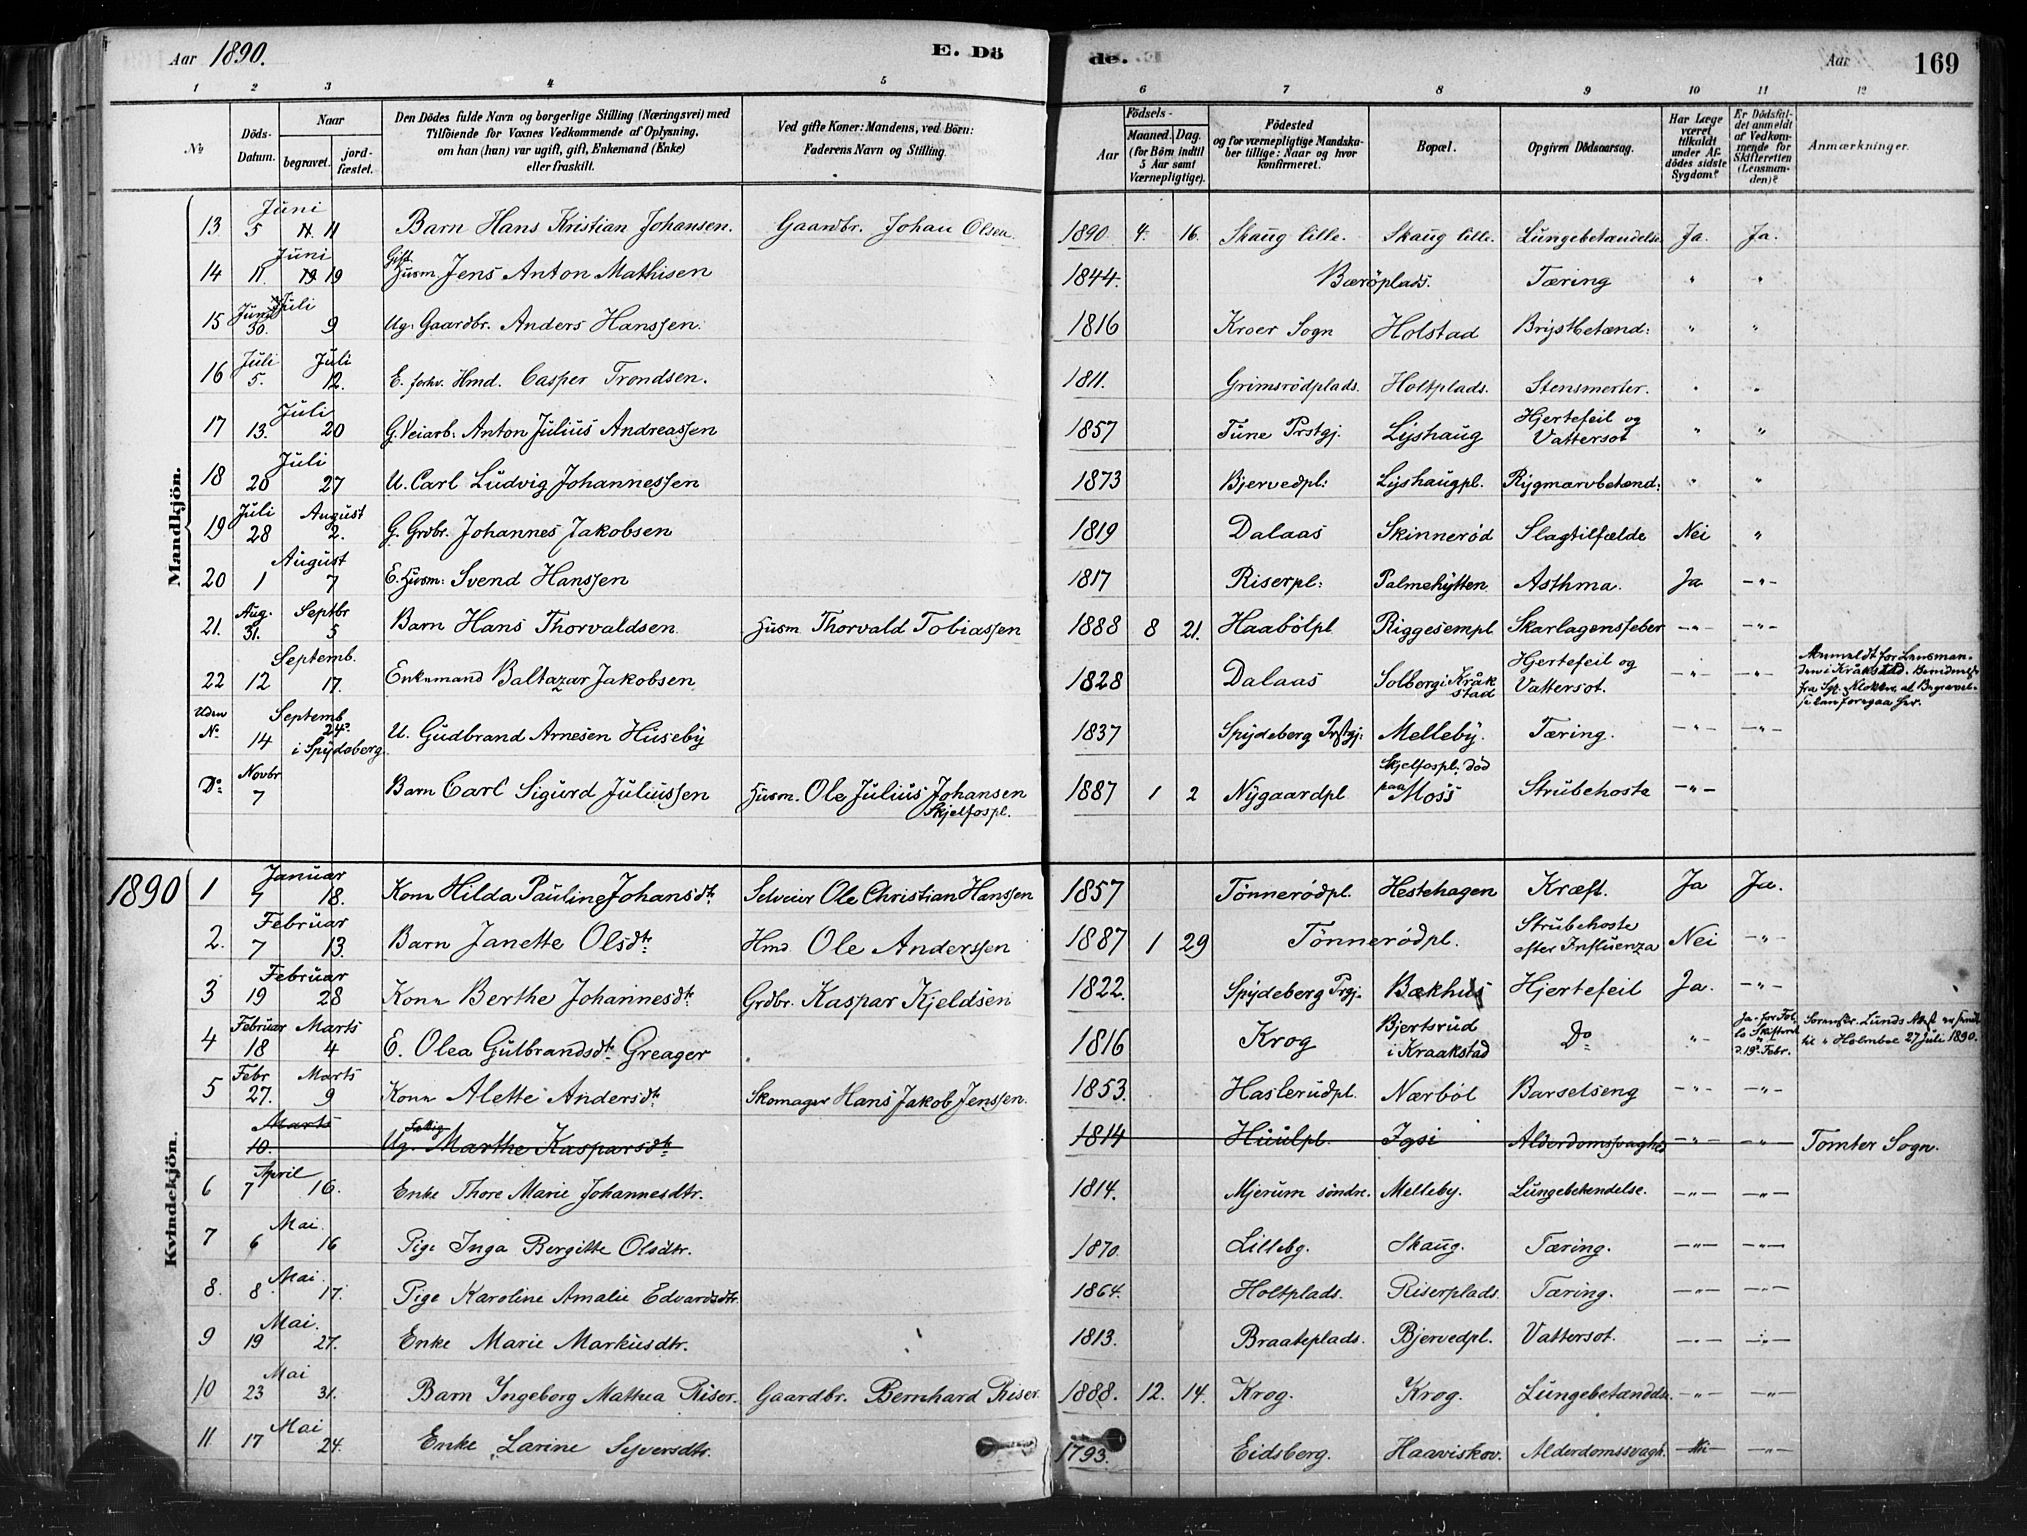 Aar 1890. E. Dö de. Aar 169
1 2 3 4 5 6 7 8 9 10 11 12
No
Döds-Datum.
Naar
begravet. jordfæstet.
Den Dödes fulde Navn og borgerlige Stilling (Næringsvei) med
Tilföiende for Voxnes Vedkommende af Oplysning,
om han (hun) var ugift, gift, Enkemand (Enke)
eller fraskilt.
Ved gifte Koner: Mandens, ved Börn:
Faderens Navn og Stilling.
Födsels-
Aar Maaned. Dag.
(for Börn indtil
5 Aar samt
Værnepligtige).
Födested
og for værnepligtige Mandskaber tillige: Naar og hvor
konfirmeret.
Bopæl.
Opgiven Dödsaarsag.
Har Læge
været
tilkaldt
under Afdödes sidste
Sygdom?
Er Dödsfaldet anmeldt
af Vedkommende for
Skifteretten
(Lensmanden)?
Anmærkninger.
Mandkjön.
13. Juni 5 11 Barn Hans Kristian Johansen. Gaardbr. Johan Olsen. 1890 4. 16. Skaug lille. Skaug lille. Lungebetændelse Ja. Ja.
14 Juni 11. 19 Gift Husm. Jens Anton Mathisen 1844. Bærøplads. Tæring " "
15 Juni 30. Juli 9 Ug. Gaardbr. Anders Hanssen. 1816 Kroer Sogn Holstad Brystbetænd: " "
16 Juli 5. Juli 12. E. forhv. Hmd. Casper Trondsen. 1811. Grimsrødplads. Holtplads. Stensmerter. " "
17 Juli 13. 20 G. Veiarb. Anton Julius Andreassen 1857 Tune Prstgj. Lyshaug Hjertefeil og Vattersot " "
18 Juli 20 27 U. Carl Ludvig Johannessen 1873 Bjervedpl: Lyshaugpl. Rygmarvbetænd: " "
19 Juli 28 August 2. G. Grdbr. Johannes Jakobsen 1819 Dalaas Skinnerød Slagtilfælde Nei "
20 August 1 7 E. Husm: Svend Hanssen 1817 Riserpl: Palmehytten Asthma. Ja -"-
21. Aug. 31. Septbr 5 Barn Hans Thorvaldsen Husm Thorvald Tobiassen 1888 8 21. Haabölpl Riggesempl Skarlagensfeber -"- -"-
22 Septemb. 12 17. Enkemand Baltazar Jakobsen 1828 Dalaas Solberg i Kråkstad Hjertefeil og Vattersot. -"- -"- Anmeldt for Lensmanden i Kråkstad.
Uden No Septemb 14 24de i Spydeberg. U. Gudbrand Arnesen Huseby 1837 Spydeberg Prstgj: Melleby. Tæring. -"- -"-
Do Novbr 7 Barn Carl Sigurd Juliussen Husm. Ole Julius Johansen Skjelfospl. 1887 1 2 Nygaardpl Skjelfospl. död paa Moss Strubehoste -"-
1890
Kvindekjön.
1 Januar 7 18. Kone Hilda Pauline Johansdtr. Selveier Ole Christian Hanssen 1857 Tönnerödpl. Hestehagen Kræft. Ja Ja.
2. Februar 7 13. Barn Janette Olsdtr. Hmd. Ole Anderssen 1887 1 29 Tönnerödpl. Strubehoste efter Influenza Nei -"-
3 Februar 19 28 Kone Berthe Johannesdtr. Grdbr. Kaspar Kjeldsen 1822. Spydeberg Prgj. Bækhus Hjertefeil Ja. -"-
4 Februar 18 Marts 4 E. Olea Gulbrandsdtr. Greager 1816 Krog Bjertsrud i Kraakstad Do " Ja. for Follo Skifteret d. 19de Febr. Sorenskr. Lunds Attest er sendt til Holmboe 27 Juli 1890.
5 Febr 27. Marts 9 Kone Alette Andersdtr. Skomager Hans Jakob Jenssen. 1853. Haslerudpl. Nærböl Barselseng -"- -"-
Marts 10. Ug. Fattig Marthe Kasparsdtr. 1814 Huulpl. Igsi Alderdomssvaghed -"- -"- Tomter Sogn.
6 April 7 16. Enke Thore Marie Johannesdtr. 1814. Mjerum söndre. Melleby. Lungebetendelse. -"- -"-
7 Mai 6 16 Pige Inga Bergitte Olsdtr. 1870. Lillebg. Skaug. Tæring. -"- -"-
8. Mai. 8. 17. Pige Karoline Amalie Edvardsdtr. 1864. Holtplads. Riserplads. Tæring. -"- -"-
9 Mai. 19 27. Enke Marie Markusdtr. 1813. Braateplads. Bjervedpl. Vattersot. -"- "
10 Mai 23 31. Barn Ingeborg Mathea Riser. Gaardbr. Bernhard Riser. 1888. 12. 14. Krog. Krog. Lungebetændelse -"- -"-
11. Mai 17 24. Enke Larine Syversdtr. 1793. Eidsberg. Haaviskov. Alderdomssvagh. Nei -"-